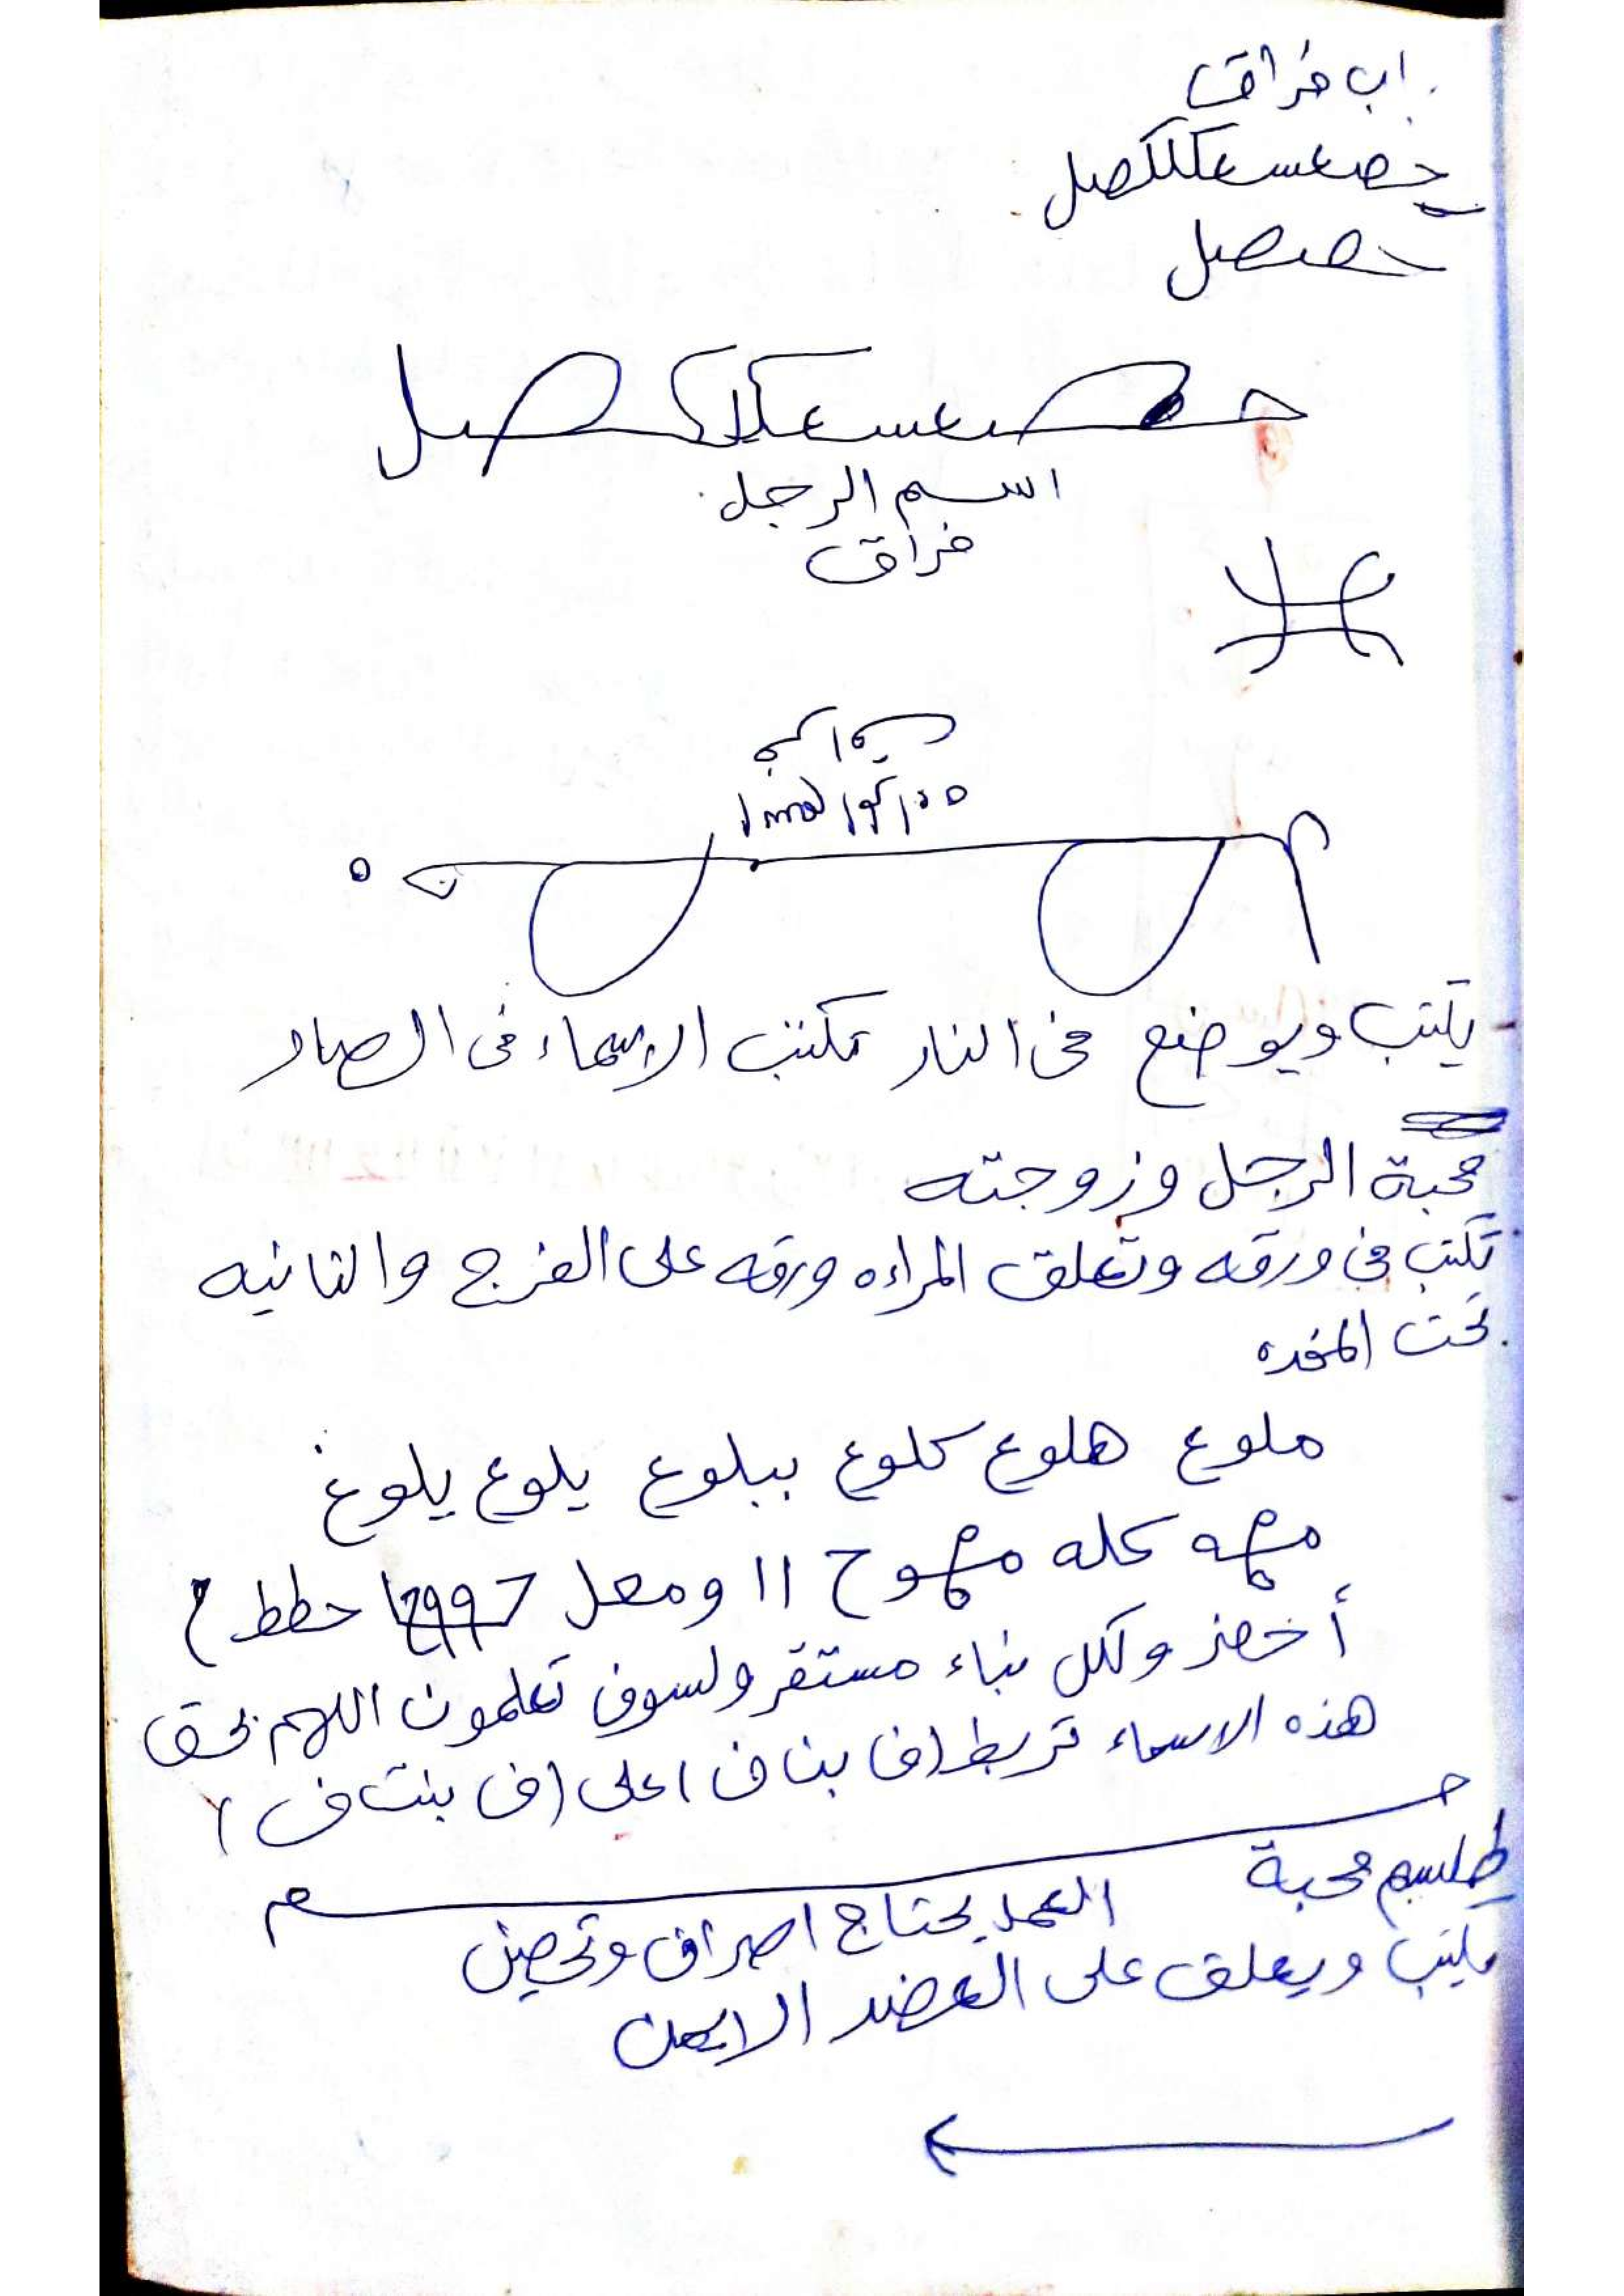 اب فراق
حصعسعكلكصل
حصصل
حصعسعكلاكصل
اسم الرجل
فراق
يكتب ويوضع في النار تكتب الاسماء في الصاد
محبة الرجل وزوجته
تكتب في ورقه وتعلق المراءه ورقه على الفرج والثانيه
تحت المخده
ملوع هلوع كلوع ببلوع يلوع يلوغ
كله ١١ ومعل حطط
ولكل نباء مستقر ولسوف تعلمون اللهم بحق
هذه الاسماء تربط (ف بن ف) على (ف بنت ف)
طلسم محبة العمل يحتاج اصراف وتحصين
يكتب ويعلق على العضد الايمن